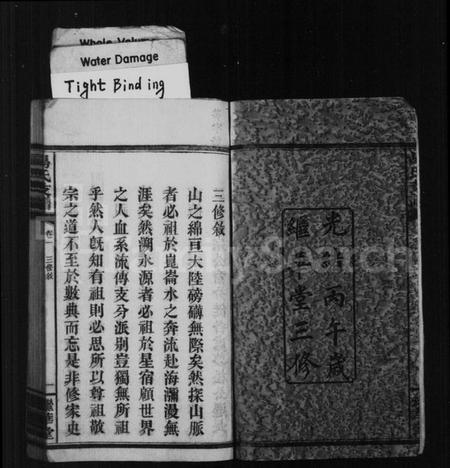 Whole Volume
Water Damage
Tight Binding
光緒丙午歲
繼三堂三修
三修敘
山之綿亘大陸磅礴無際矣然探山脈
者必祖於崑崙水之奔流赴海瀰漫無
涯矣然溯水源者必祖於星宿顧世界
之人血系流傳支分派別豈獨無所祖
乎然人旣知有祖則必思所以尊祖敬
宗之道不至於數典而忘是非修家史
卷一
三修敘